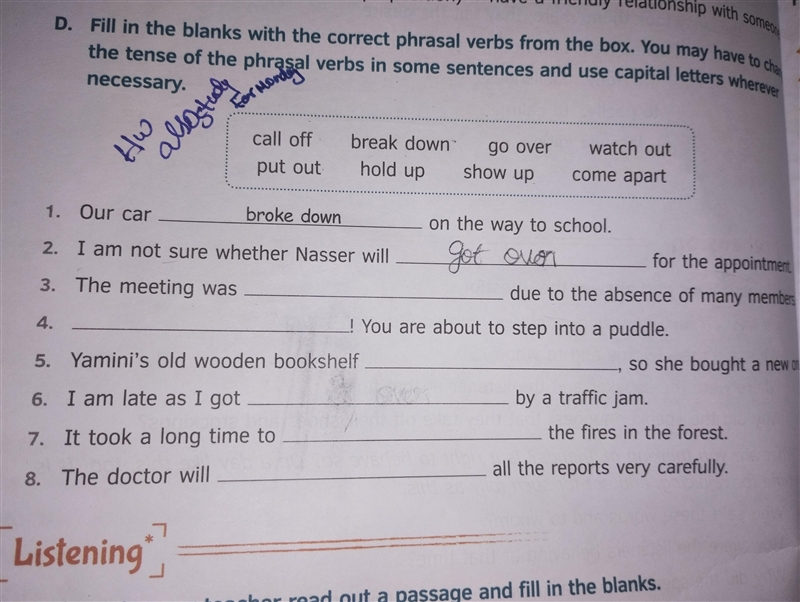 a friendly relationship with someone
D. Fill in the blanks with the correct phrasal verbs from the box. You may have to
the tense of the phrasal verbs in some sentences and use capital letters wherever
necessary.
HW
also study
for Monday
call off break down go over watch out
put out hold up show up come apart
1. Our car broke down on the way to school.
2. I am not sure whether Nasser will got over for the appointment.
3. The meeting was ____ due to the absence of many members
4. ____! You are about to step into a puddle.
5. Yamini's old wooden bookshelf ____, so she bought a new
6. I am late as I got ____ by a traffic jam.
7. It took a long time to ____ the fires in the forest.
8. The doctor will ____ all the reports very carefully.
Listening*
teacher read out a passage and fill in the blanks.